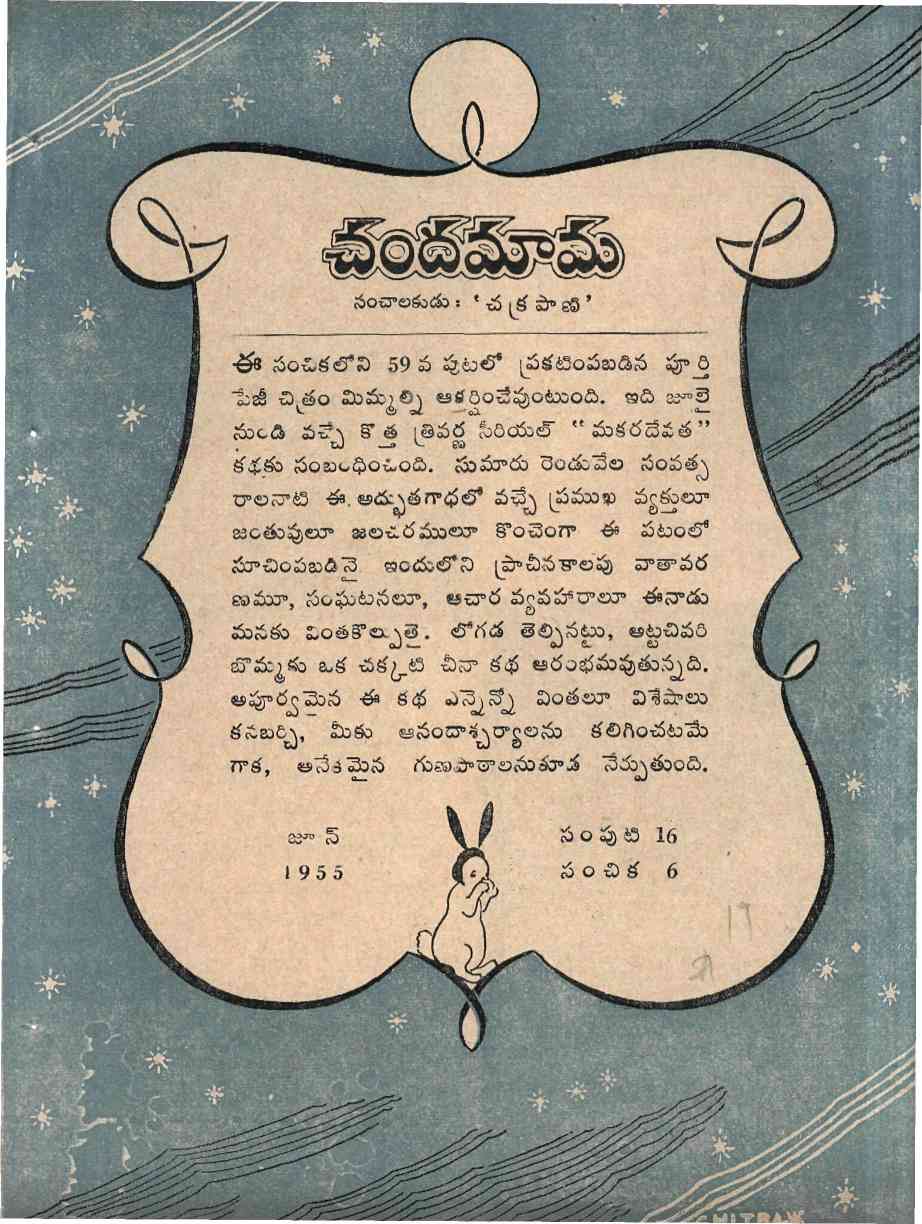 చందమామ
సంచాలకుడు : ‘చక్రపాణి’
ఈ సంచికలోని 59 వ పుటలో ప్రకటింపబడిన పూర్తి
పేజీ చిత్రం మిమ్మల్ని ఆకర్షించేవుంటుంది. ఇది జూలై
నుండి వచ్చే కొత్త త్రివర్ణ సీరియల్ “మకరదేవత”
కథకు సంబంధించింది. సుమారు రెండువేల సంవత్స
రాలనాటి ఈ అద్భుతగాధలో వచ్చే ప్రముఖ వ్యక్తులూ
జంతువులూ జలచరములూ కొంచెంగా ఈ పటంలో
సూచింపబడినై. ఇందులోని ప్రాచీనకాలపు వాతావర
ణమూ, సంఘటనలూ, ఆచార వ్యవహారాలూ ఈనాడు
మనకు వింతకొల్పుతై. లోగడ తెల్పినట్టు, అట్టచివరి
బొమ్మకు ఒక చక్కటి చీనా కథ ఆరంభమవుతున్నది.
అపూర్వమైన ఈ కథ ఎన్నెన్నో వింతలూ విశేషాలు
కనబర్చి, మీకు ఆనందాశ్చర్యాలను కలిగించటమే
గాక, అనేకమైన గుణపాఠాలనుకూడ నేర్పుతుంది.
జూన్
1955
సంపుటి 16
సంచిక 6